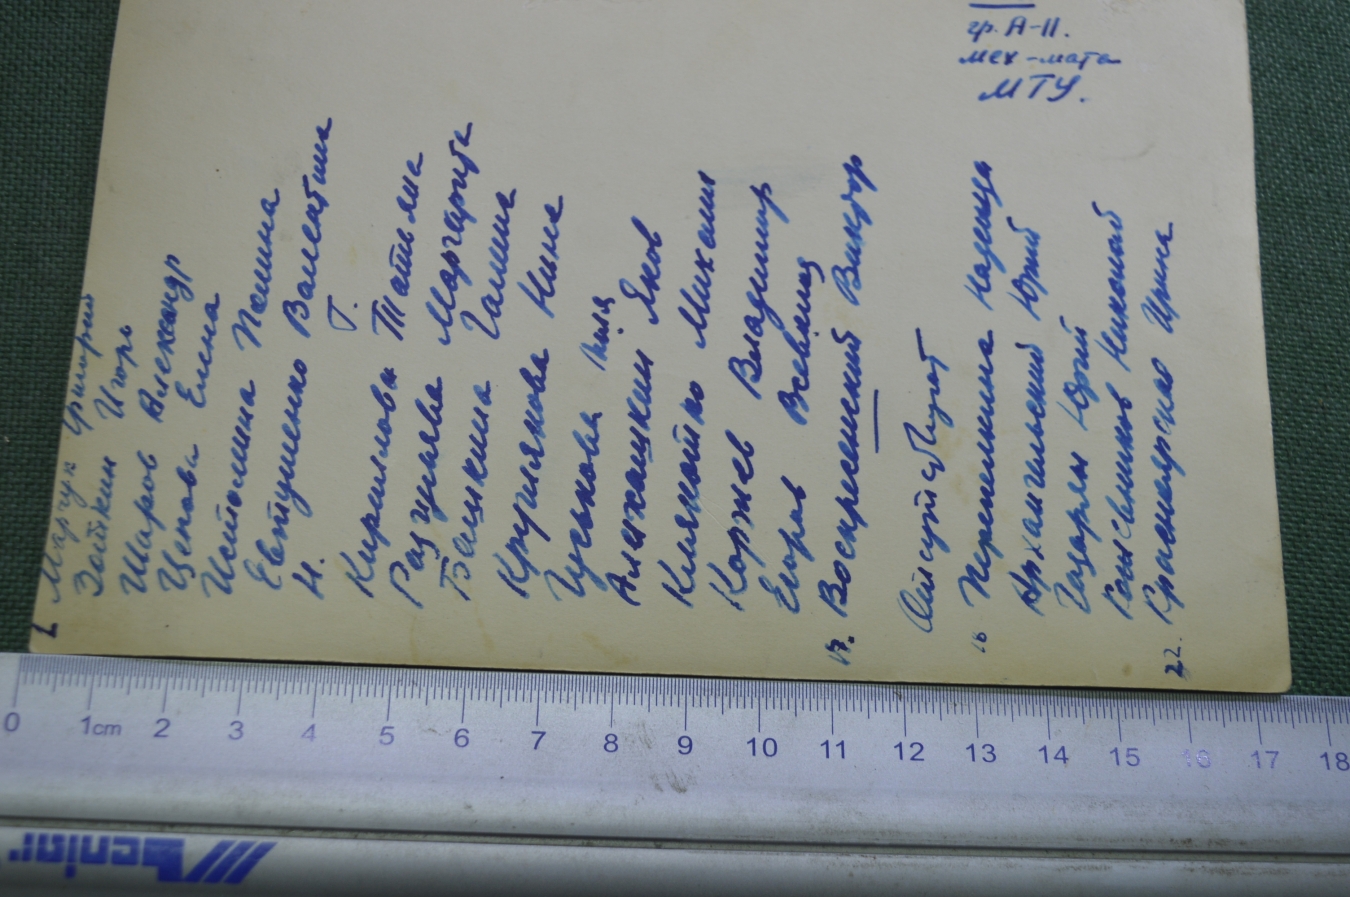 гр. А-11.
мех-мата
МГУ.
Маргул Григорий
Зайткин Игорь
Шаров Александр
Цепова Елена
Истюшина Полина
Евтушенко Валентина
Н. Г.
Кирилова Татьяна
Разгуляева Маргарита
Галина
Круглякова Нина
Гуськова
Алмухацкий Яков
Михаил
Коржев Владимир
Егоров Всеволод
17. Воскресенский Виктор
Отсутствуют
18 Перепелкина Надежда
Архангельский Юрий
Газарян Юрий
Николай
22. Красноярская Ирина
0 1cm 2 3 4 5 6 7 8 9 10 11 12 13 14 15 16 17 18